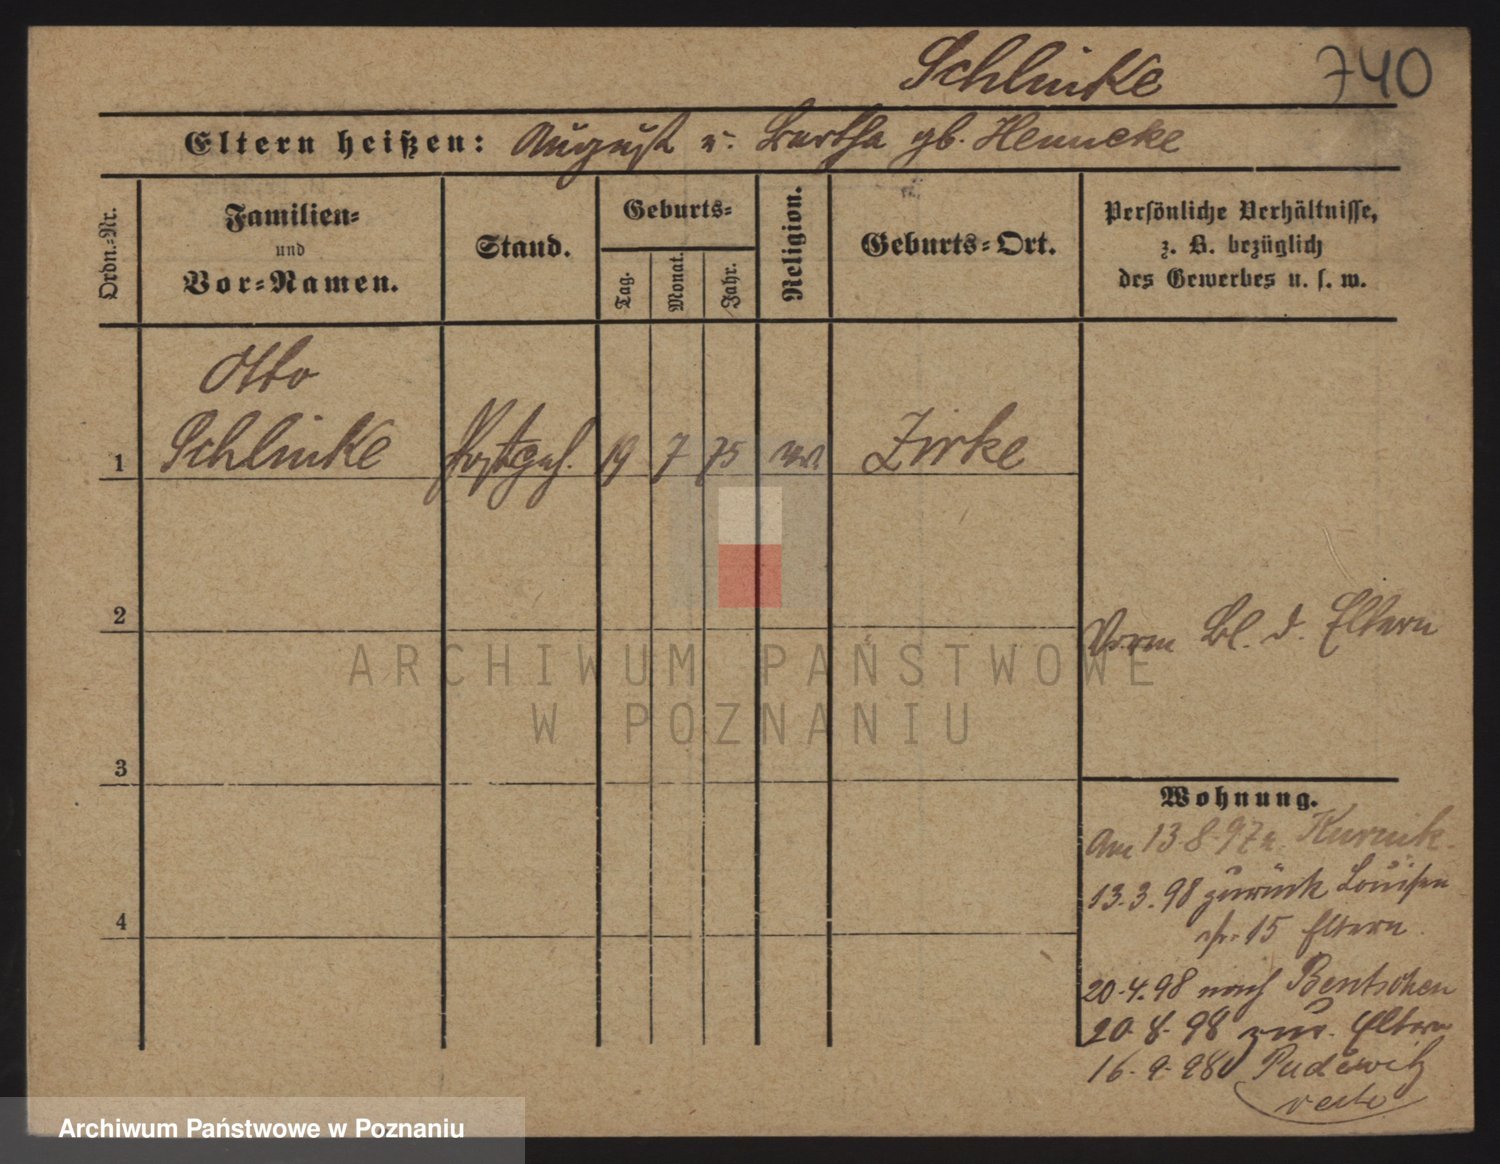 Schlinke 740
Eltern heißen: August u. Bertha gb. Henncke
Ordn.-Nr.
Familien-
und
Vor-Namen.
Stand.
Geburts-
Tag.
Monat.
Jahr.
Religion.
Geburts-Ort.
Persönliche Verhältnisse,
z. B. bezüglich
des Gewerbes u. s. w.
Otto
1 Schlinke Postgeh. 19 7 75 ev. Zirke
2
Vorm Bl. d. Eltern
3
Wohnung.
Am 13.8.97 n. Kurnik
13.3.98 zurück Louisen
str. 15 Eltern
4
20.4.98 nach Bentschen
20.8.98 zur. Eltern
16.9.98 Pudewitz
verte
ARCHIWUM PAŃSTWOWE
W POZNANIU
Archiwum Państwowe w Poznaniu